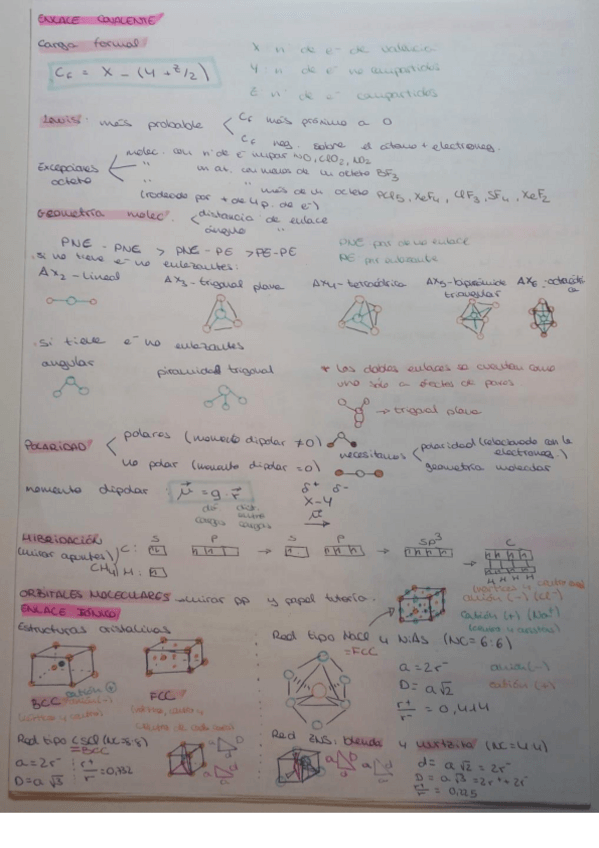 ENLACE COVALENTE
Carga formal
X: nº de e- de valencia
Cf = X - (Y + Z/2)
Y: nº de e- no compartidos
Z: nº de e- compartidos
Lewis: más probable
Cf más próximo a 0
Cf neg. sobre el átomo + electroneg.
Excepciones octeto
molec. con nº de e- impar NO, ClO2, NO2
" " con menos de un octeto BF3
" " más de un octeto PCl5, XeF4, ClF3, SF4, XeF2
(rodeado por + de 4 p. de e-)
Geometría molec.
distancia de enlace
ángulo "
PNE - PNE > PNE - PE > PE-PE
PNE par de no enlace
PE par enlazante
. si no tiene e- no enlazantes:
AX2 - Lineal
AX3 - trigonal plana
AX4 - tetraédrica
AX5 - bipirámide triangular
AX6 - octaédrica
. si tiene e- no enlazantes
angular
piramidal trigonal
* Los dobles enlaces se cuentan como
uno solo a efectos de pares.
→ trigonal plana
POLARIDAD
polares (momento dipolar ≠ 0)
no polar (momento dipolar = 0)
necesitamos
polaridad (relacionado con la electroneg.)
geometría molecular
momento dipolar: μ = q · r
δ+ δ-
X - Y
μ
HIBRIDACIÓN
(mirar apuntes)
CH4
C: S P → S P → SP3 C
H:
H H H H
ORBITALES MOLECULARES → mirar pp y papel tutoría.
anión (-) (Cl-)
catión (+) (Na+)
ENLACE IÓNICO
Estructuras cristalinas
Red tipo NaCl y NiAs (NC = 6:6)
= FCC
a = 2r-
anión (-)
D = a√2
catión (+)
r+/r- = 0,414
BCC
catión +
FCC
Red tipo CsCl (NC = 8:8)
= BCC
a = 2r-
r+/r- = 0,732
D = a√3
Red ZnS: blenda y wurtzita (NC = 4:4)
d = a√2 = 2r-
D = a√3 = 2r+ + 2r-
r+/r- = 0,225